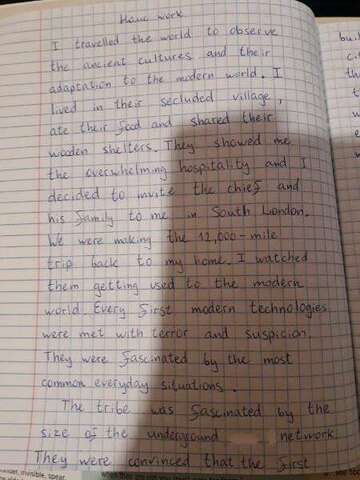 Home work
I travelled the world to observe
the ancient cultures and their
adaptation to the modern world. I
lived in their secluded village,
ate their food and shared their
wooden shelters. They showed me
the overwhelming hospitality and I
decided to invite the chief and
his family to me in South London.
We were making the 12,000-mile
trip back to my home. I watched
them getting used to the modern
world. Every first modern technologies
were met with terror and suspicion.
They were fascinated by the most
common everyday situations.
The tribe was fascinated by the
size of the underground network.
They were convinced that the first
invisible, spear